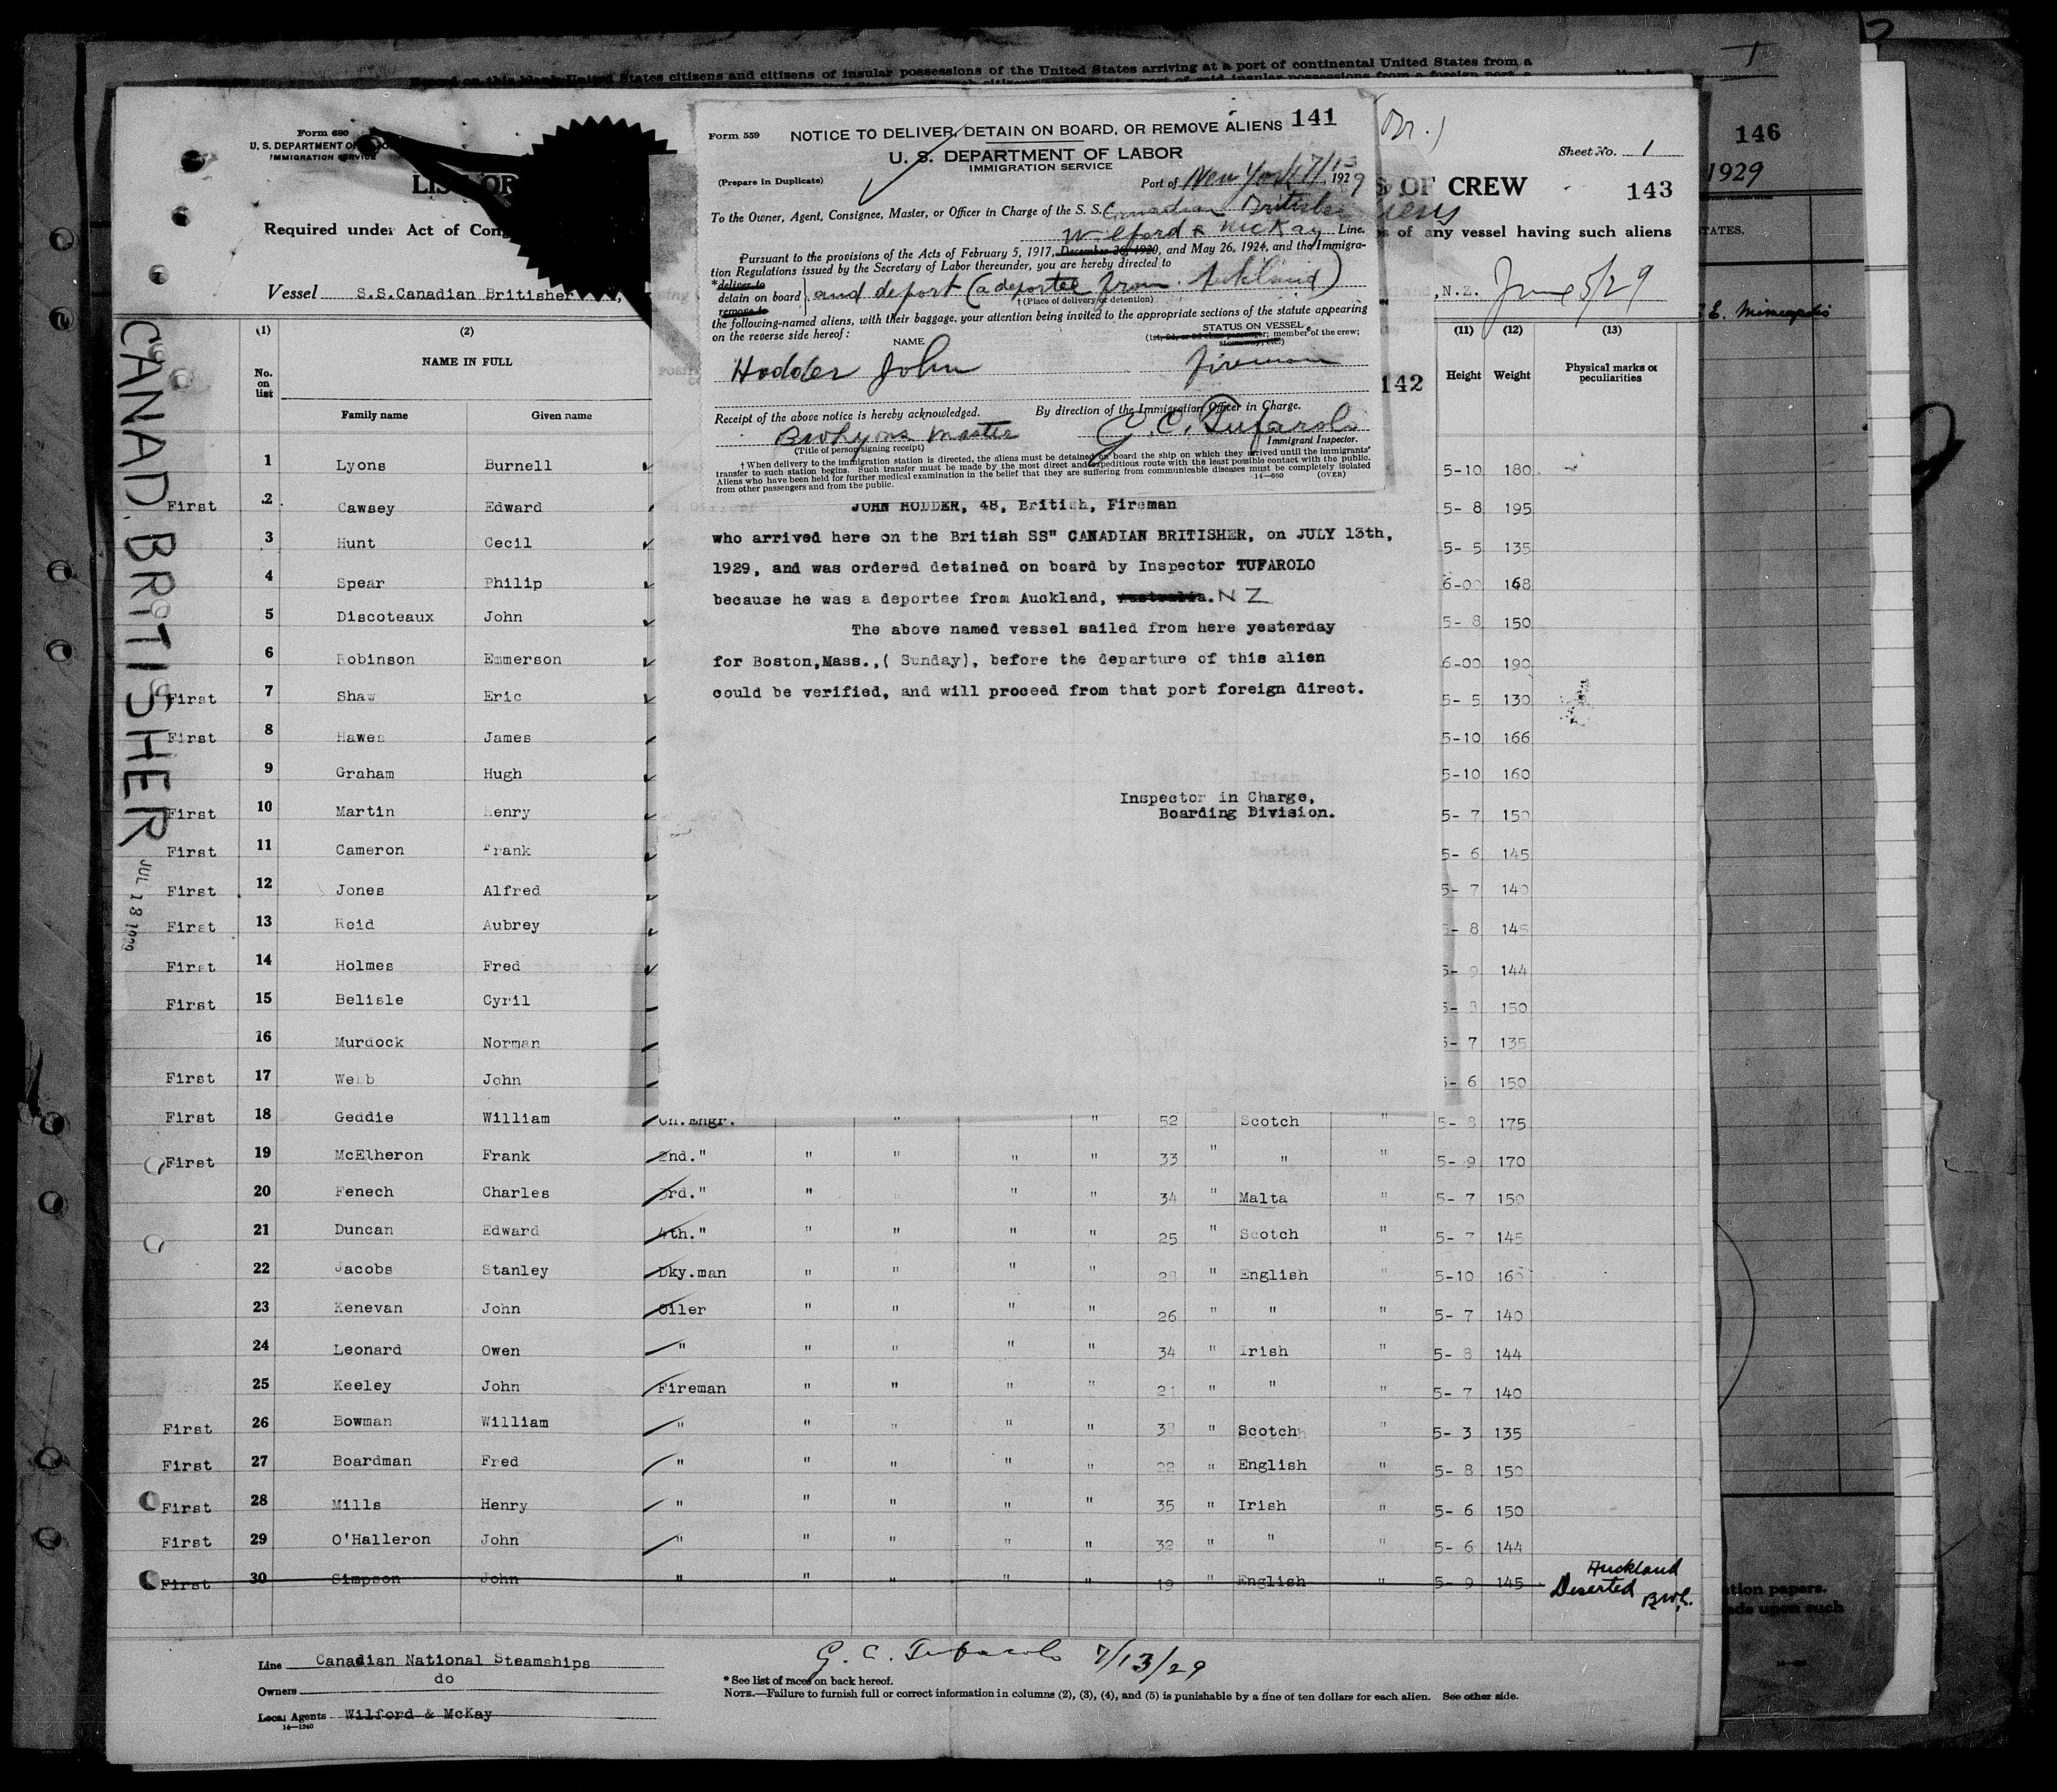 Record on this blank United States citizens and citizens of insular possessions of the United States arriving at a port of continental United States from a
146
1929
STATES.
Form 680
U. S. DEPARTMENT OF
IMMIGRATION SERVICE
LIST OR
S OF CREW
Sheet No. 1
143
Required under Act of Cong
of any vessel having such aliens
Vessel S.S.Canadian Britisher
, N.Z. June 5/29
CANAD. BRITISHER
JUL 18 1929
Form 559
NOTICE TO DELIVER, DETAIN ON BOARD, OR REMOVE ALIENS 141
U. S. DEPARTMENT OF LABOR
IMMIGRATION SERVICE
(Prepare in Duplicate)
Port of New York 7/13, 1929
To the Owner, Agent, Consignee, Master, or Officer in Charge of the S. S. Canadian Britisher
Wilford & McKay Line.
Pursuant to the provisions of the Acts of February 5, 1917, December 26, 1920, and May 26, 1924, and the Immigra-
tion Regulations issued by the Secretary of Labor thereunder, you are hereby directed to
*deliver to
detain on board
remove to
and deport (a deportee from Aukland)
†(Place of delivery or detention)
the following-named aliens, with their baggage, your attention being invited to the appropriate sections of the statute appearing
on the reverse side hereof:
NAME
STATUS ON VESSEL
(1st, 2d, or 3d class passenger; member of the crew;
stowaway, etc.)
Hodder John Fireman
142
Receipt of the above notice is hereby acknowledged.
By direction of the Immigration Officer in Charge.
BW Lyons Master
G. C. Tufarolo
(Title of person signing receipt)
Immigrant Inspector.
†When delivery to the immigration station is directed, the aliens must be detained on board the ship on which they arrived until the immigrants'
transfer to such station begins. Such transfer must be made by the most direct and expeditious route with the least possible contact with the public.
Aliens who have been held for further medical examination in the belief that they are suffering from communicable diseases must be completely isolated
from other passengers and from the public.
14—660 (OVER)
JOHN HODDER, 48, British, Fireman
who arrived here on the British SS" CANADIAN BRITISHER, on JULY 13th,
1929, and was ordered detained on board by Inspector TUFAROLO
because he was a deportee from Auckland, Australia. N Z
The above named vessel sailed from here yesterday
for Boston,Mass.,( Sunday), before the departure of this alien
could be verified, and will proceed from that port foreign direct.
Inspector in Charge,
Boarding Division.
(1) (2) (11) (12) (13)
No. on list
NAME IN FULL
Family name Given name
Height Weight Physical marks or peculiarities
1 Lyons Burnell 5-10 180
First 2 Cawsey Edward 5- 8 195
3 Hunt Cecil 5- 5 135
4 Spear Philip 6-00 168
5 Discoteaux John 5- 8 150
6 Robinson Emmerson 6-00 190
First 7 Shaw Eric 5- 5 130
First 8 Hawes James 5-10 166
9 Graham Hugh 5-10 160
First 10 Martin Henry 5- 7 150
First 11 Cameron Frank 5- 6 145
First 12 Jones Alfred 5- 7 140
First 13 Reid Aubrey 5- 8 145
First 14 Holmes Fred 5- 9 144
First 15 Belisle Cyril 5- 8 150
16 Murdock Norman 5- 7 135
First 17 Webb John 5- 6 150
First 18 Geddie William Ch.Engr. " " 52 Scotch " 5- 8 175
First 19 McElheron Frank 2nd." " " " " 33 " " " 5- 9 170
20 Fenech Charles 3rd." " " " " 34 " Malta " 5- 7 150
21 Duncan Edward 4th." " " " " 25 " Scotch " 5- 7 145
22 Jacobs Stanley Dky.man " " " " 28 " English " 5-10 160
23 Kenevan John Oiler " " " " 26 " " " 5- 7 140
24 Leonard Owen " " " " " 34 " Irish " 5- 8 144
25 Keeley John Fireman " " " " 21 " " " 5- 7 140
First 26 Bowman William " " " " " 38 " Scotch " 5- 3 135
First 27 Boardman Fred " " " " " 22 " English " 5- 8 150
First 28 Mills Henry " " " " " 35 " Irish " 5- 6 150
First 29 O'Halleron John " " " " " 32 " " " 5- 6 144
First 30 Simpson John " " " " " 19 " English " 5- 9 145 Auckland
Deserted BWL.
Line Canadian National Steamships
Owners do
Local Agents Wilford & McKay
14—1240
G. C. Tufarolo 7/13/29
* See list of races on back hereof.
NOTE.—Failure to furnish full or correct information in columns (2), (3), (4), and (5) is punishable by a fine of ten dollars for each alien. See other side.
tion papers.
upon such